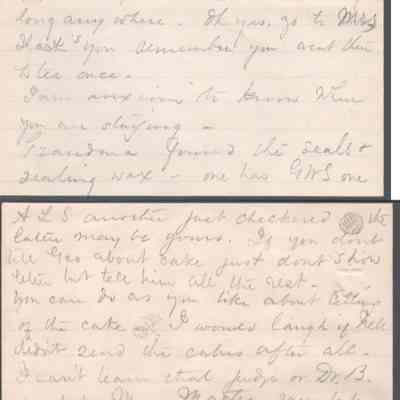 long any where. Oh yes, go to Mrs
you remember you went there
to tea once.
I am anxious to know when
you are staying -
Grandma found the seals &
sealing wax - one has GWS one
A L S another just checkered the
latter may be yours. If you dont
tell Geo about cake just dont show
letter but tell him all the rest.
You can do as you like about telling
of the cake I would laugh if
didnt send the cakes after all.
I cant learn that judge or Dr. B.